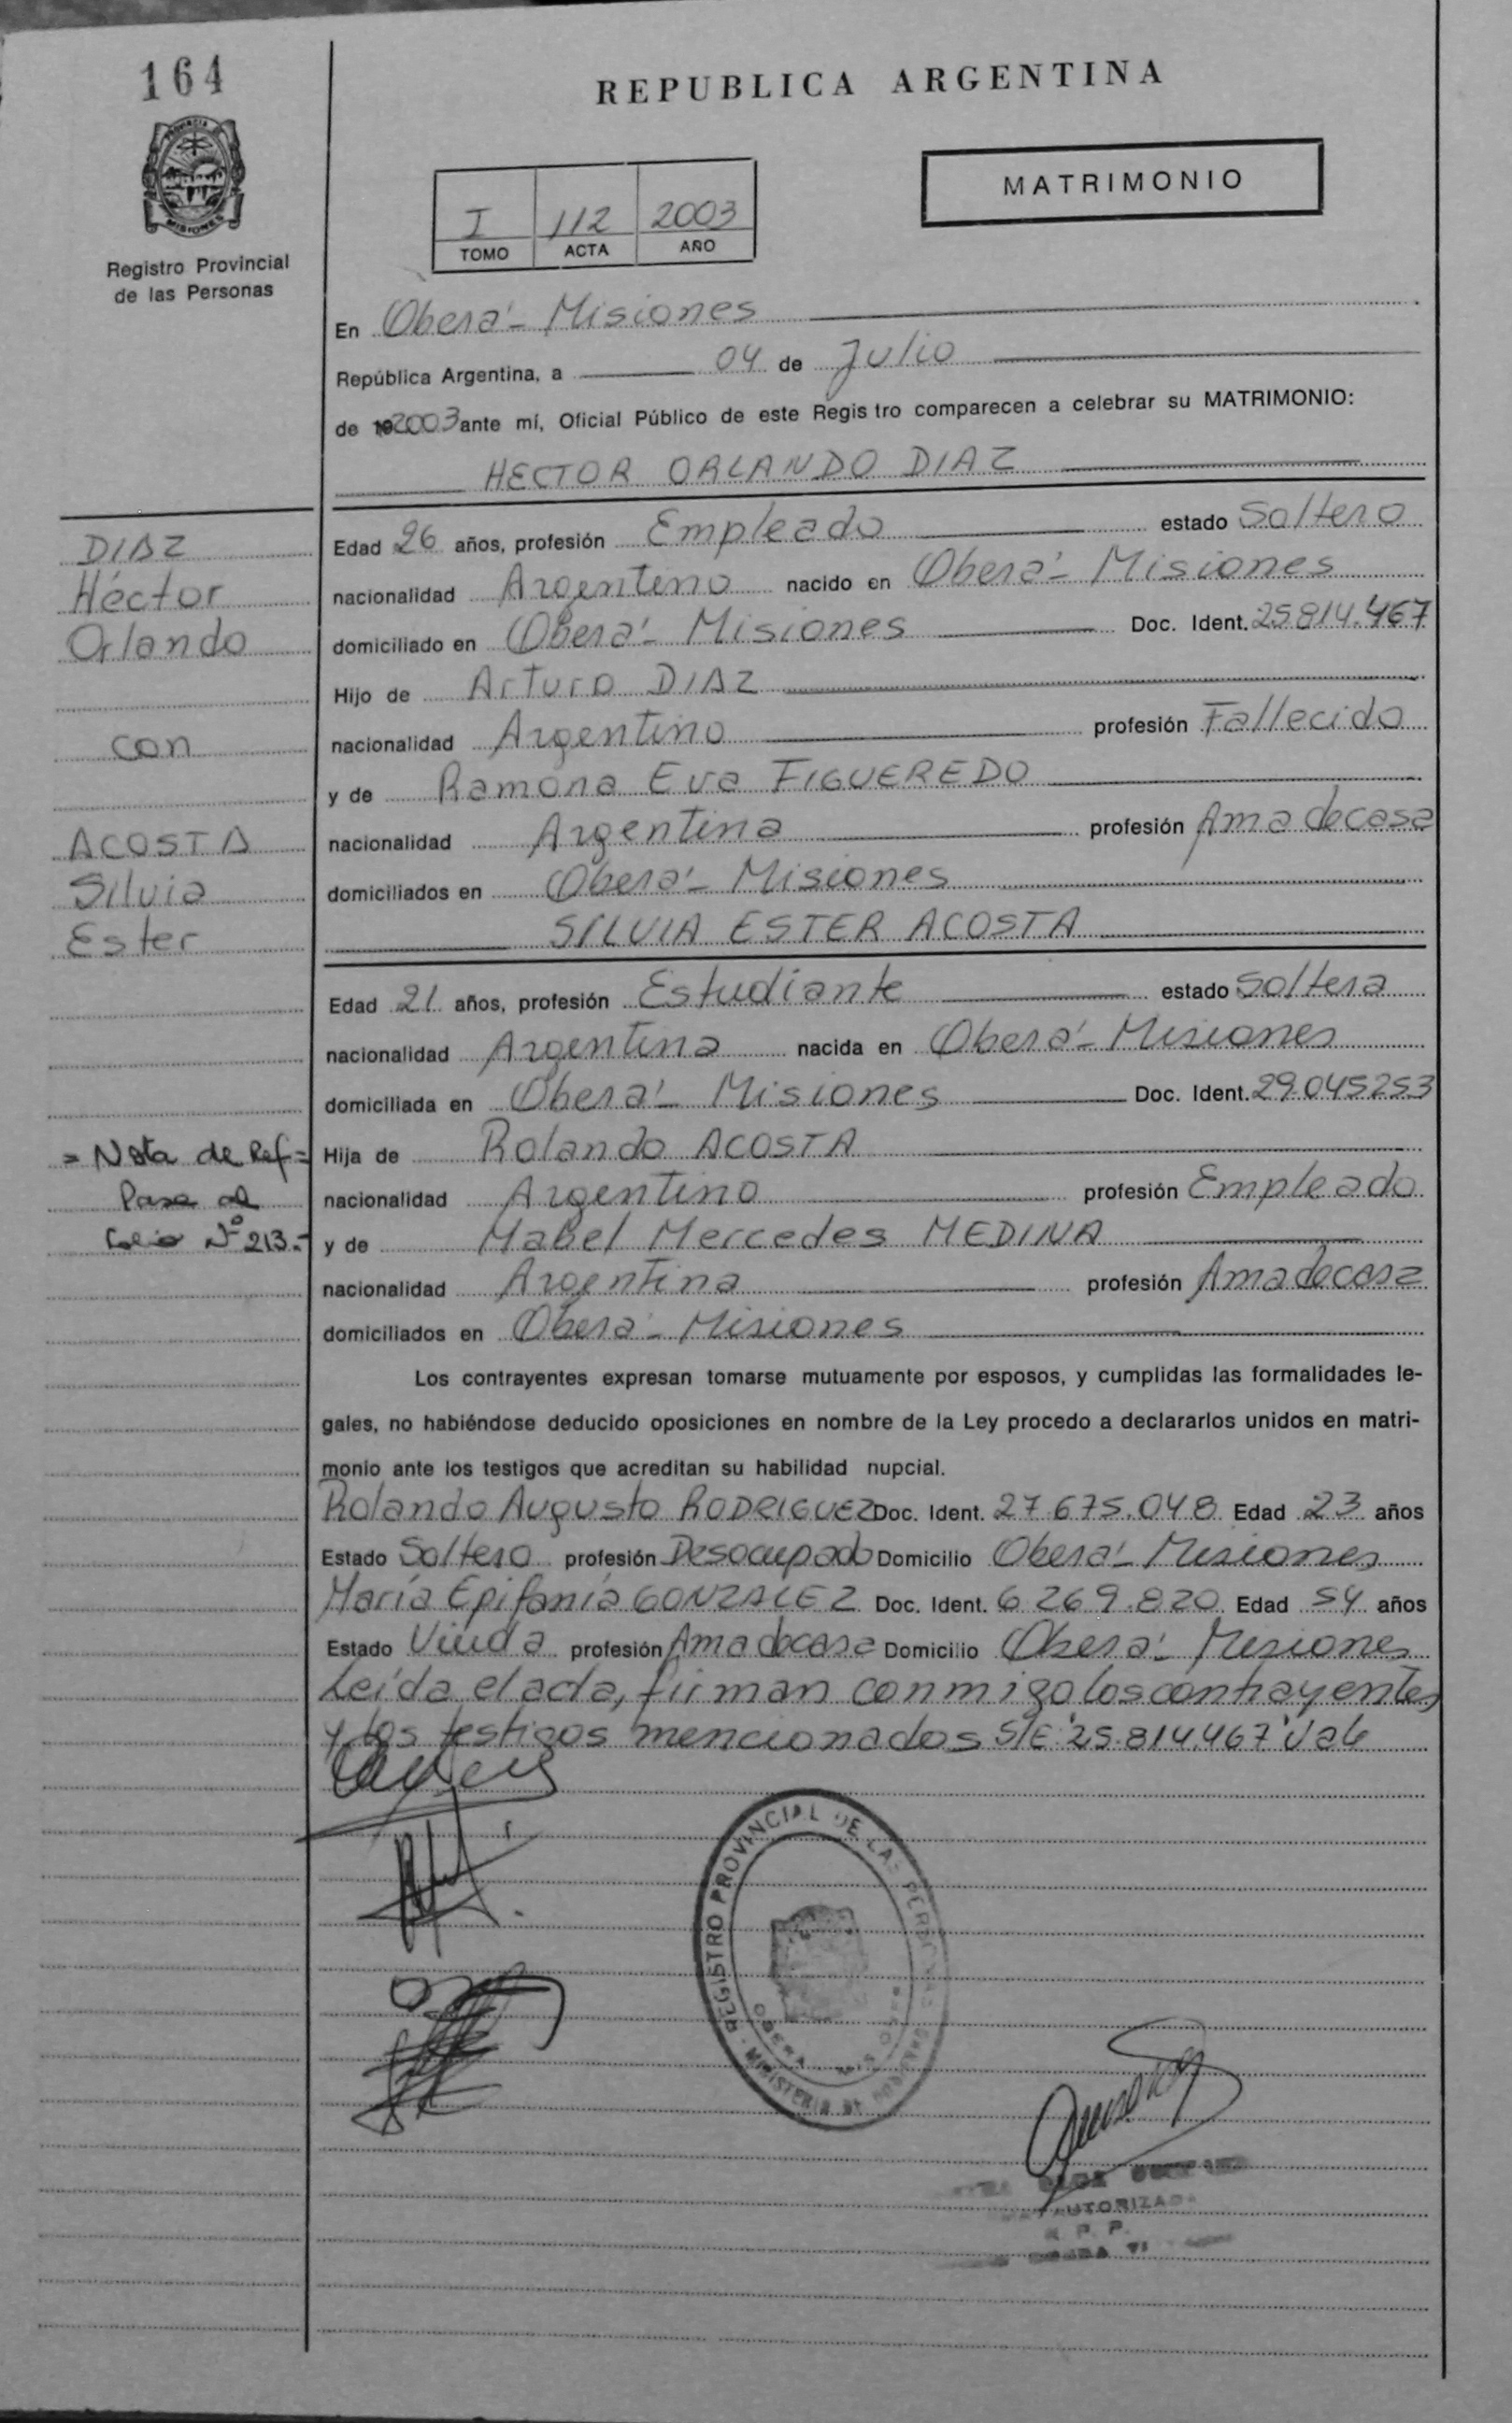 164
REPUBLICA ARGENTINA
PROVINCIA
MISIONES
Registro Provincial
de las Personas
I 112 2003
TOMO ACTA AÑO
MATRIMONIO
En Oberá - Misiones
República Argentina, a 04 de Julio
de 2003 ante mí, Oficial Público de este Regis tro comparecen a celebrar su MATRIMONIO:
HECTOR ORLANDO DIAZ
DIAZ
Héctor
Orlando
con
ACOSTA
Silvia
Ester
= Nota de Ref =
Pasa al
Folio Nº 213.-
Edad 26 años, profesión Empleado estado Soltero
nacionalidad Argentino nacido en Oberá - Misiones
domiciliado en Oberá - Misiones Doc. Ident. 25.814.467
Hijo de Arturo DIAZ
nacionalidad Argentino profesión Fallecido
y de Ramona Eva FIGUEREDO
nacionalidad Argentina profesión Ama de casa
domiciliados en Oberá - Misiones
SILVIA ESTER ACOSTA
Edad 21 años, profesión Estudiante estado Soltera
nacionalidad Argentina nacida en Oberá - Misiones
domiciliada en Oberá - Misiones Doc. Ident. 29.045253
Hija de Rolando ACOSTA
nacionalidad Argentino profesión Empleado
y de Mabel Mercedes MEDINA
nacionalidad Argentina profesión Ama de casa
domiciliados en Oberá - Misiones
Los contrayentes expresan tomarse mutuamente por esposos, y cumplidas las formalidades le-
gales, no habiéndose deducido oposiciones en nombre de la Ley procedo a declararlos unidos en matri-
monio ante los testigos que acreditan su habilidad nupcial.
Rolando Augusto RODRIGUEZ Doc. Ident. 27.675.048 Edad 23 años
Estado Soltero profesión Desocupado Domicilio Oberá - Misiones
María Epifania GONZALEZ Doc. Ident. 6.269.820 Edad 54 años
Estado Viuda profesión Ama de casa Domicilio Oberá - Misiones
Leída el acta, firman conmigo los contrayentes
y los testigos mencionados S/E "25.814.467" Vale
REGISTRO PROVINCIAL DE LAS PERSONAS
OBERA
MINISTERIO DE GOBIERNO
AUTORIZADA
R. P. P.